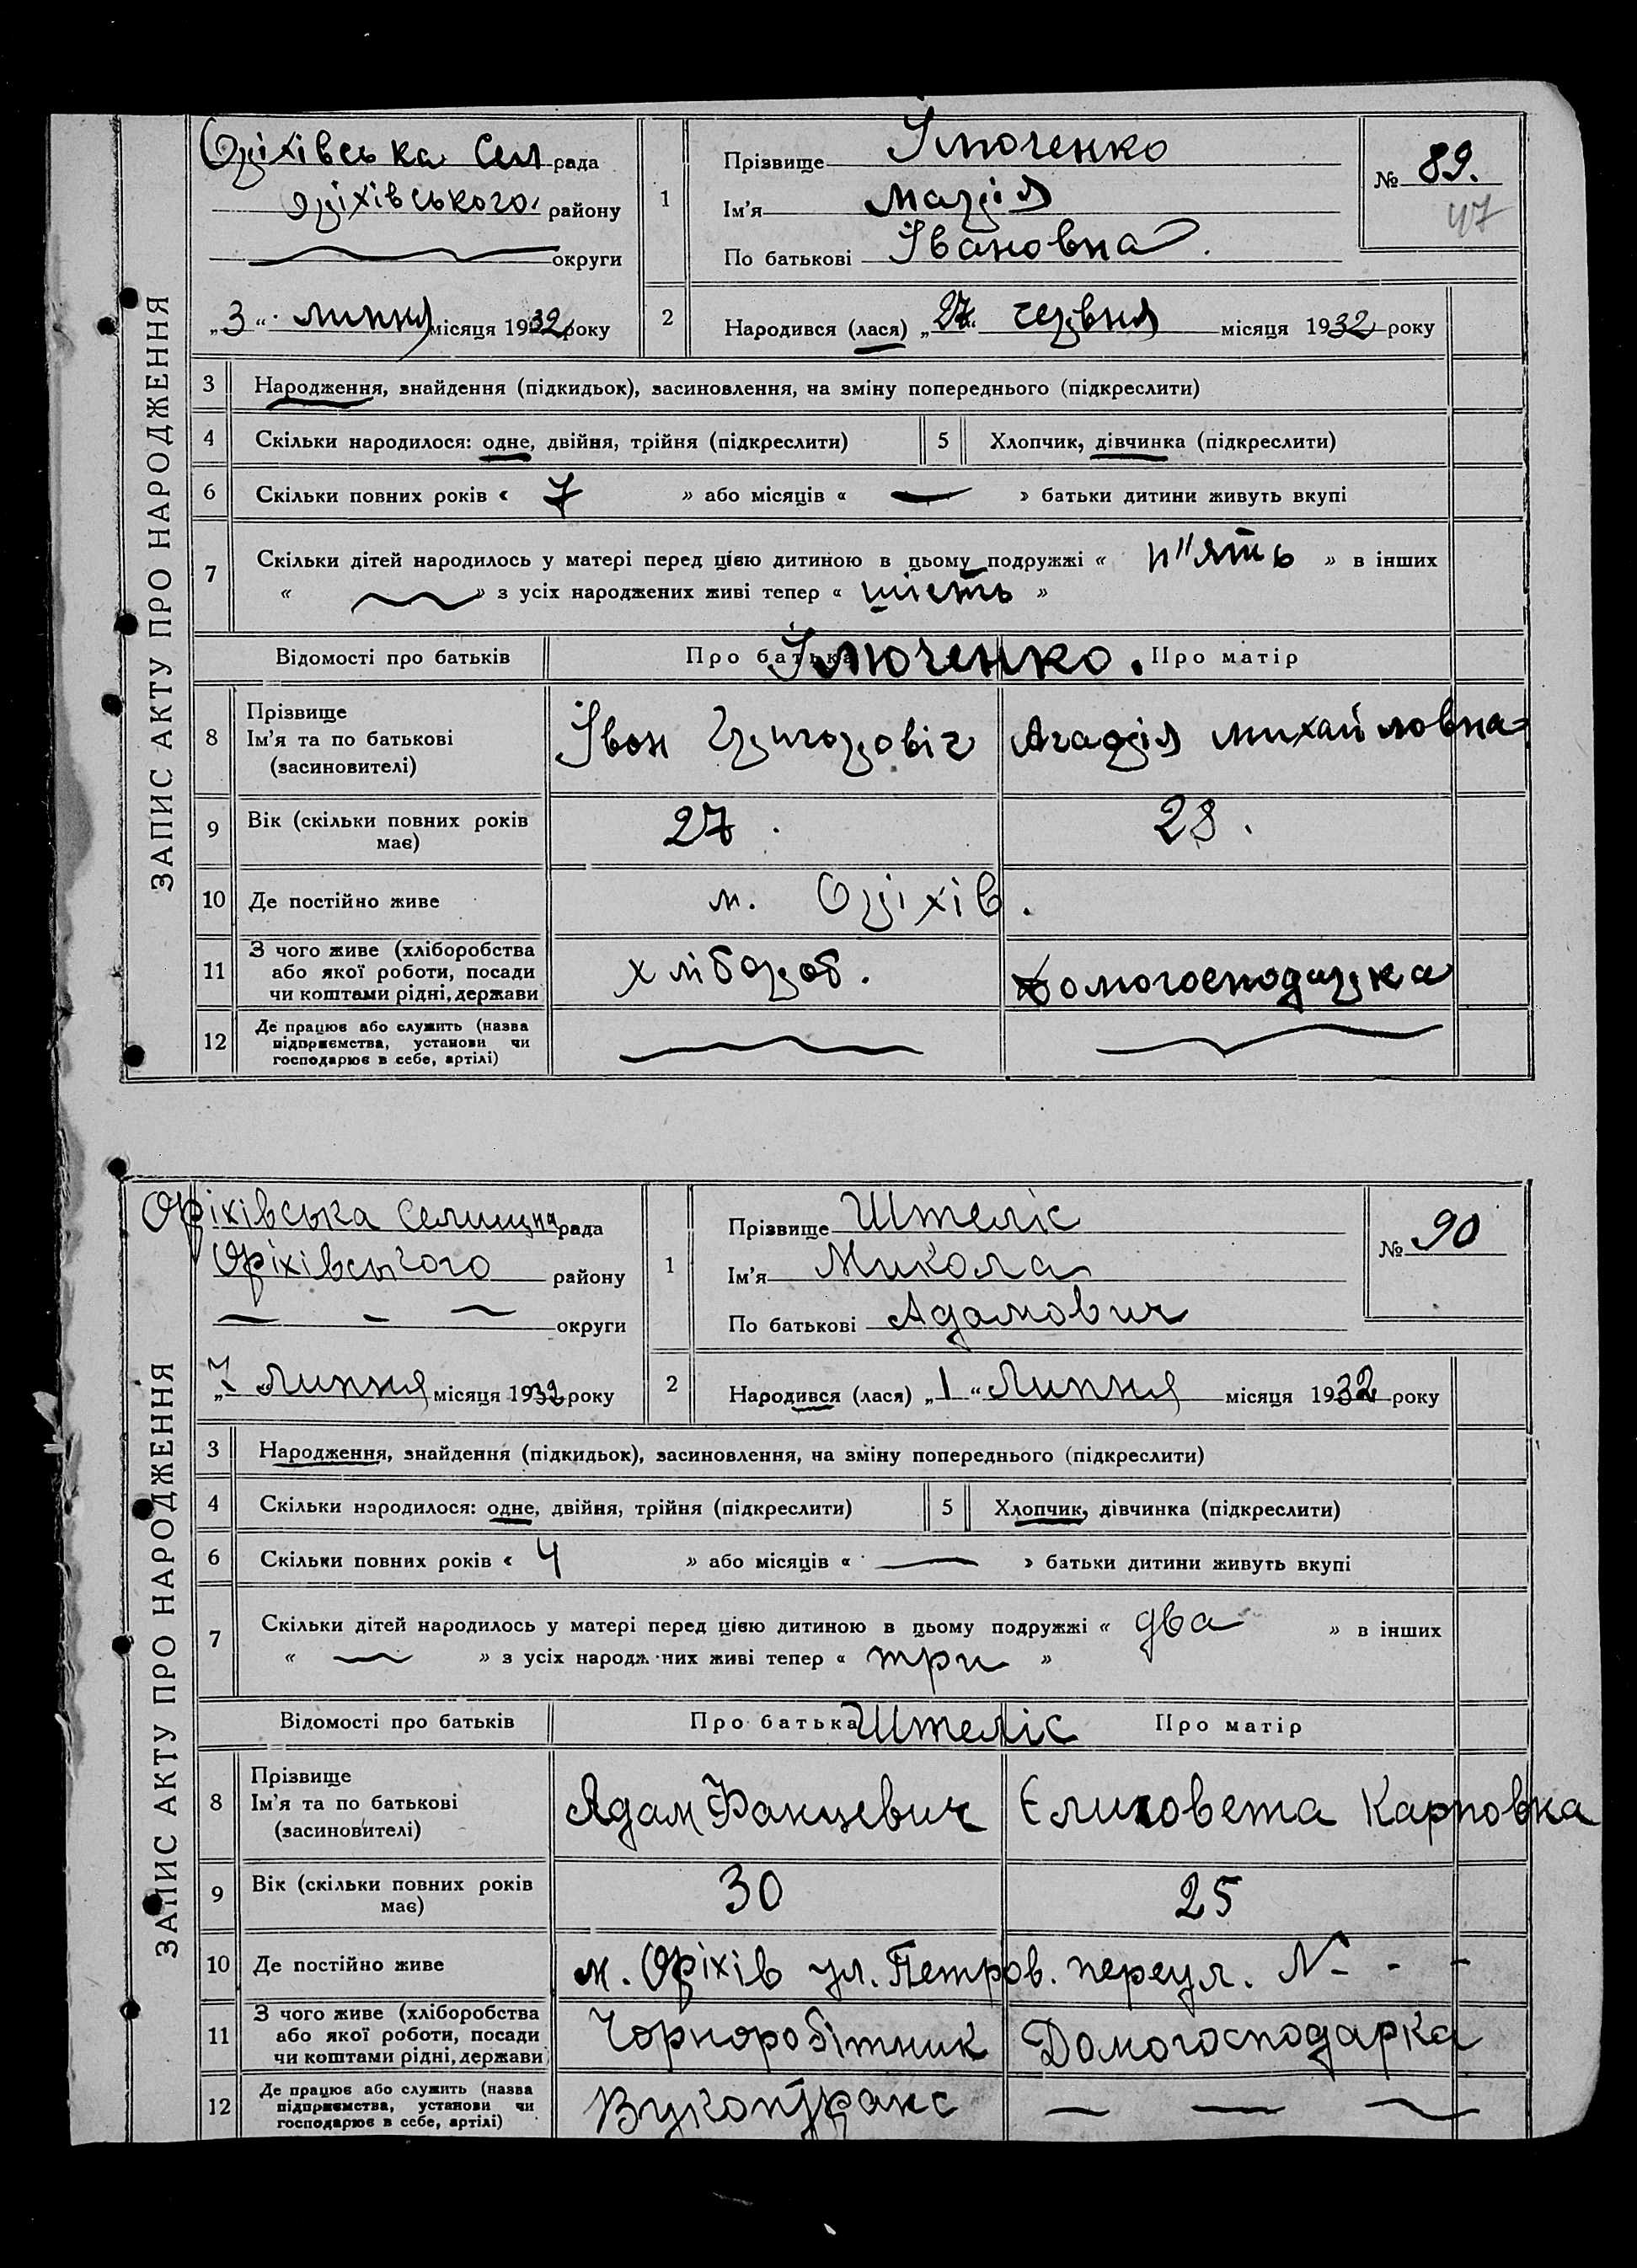 ЗАПИС АКТУ ПРО НАРОДЖЕННЯ
Оріхівська Сел рада
Оріхівського району
округи
„3“ липня місяця 1932 року
1
Прізвище Ілюченко
Ім'я Марія
По батькові Івановна.
№ 89.
47
2
Народився (лася) „27“ червня місяця 1932 року
3 Народження, знайдення (підкидьок), засиновлення, на зміну попереднього (підкреслити)
4 Скільки народилося: одне, двійня, трійня (підкреслити) 5 Хлопчик, дівчинка (підкреслити)
6 Скільки повних років « 7 » або місяців « — » батьки дитини живуть вкупі
7 Скільки дітей народилось у матері перед цією дитиною в цьому подружжі « п"ять » в інших
« » з усіх народжених живі тепер « шість »
Відомості про батьків Про батька Ілюченко. Про матір
8 Прізвище
Ім'я та по батькові
(засиновителі)
Івон Григоровіч Агафія михайловна
9 Вік (скільки повних років має) 27. 28.
10 Де постійно живе м. Оріхів.
11 З чого живе (хліборобства
або якої роботи, посади
чи коштами рідні, держави
хлібороб. Домогосподарка
12 Де працює або служить (назва
підприємства, установи чи
господарює в себе, артілі)
ЗАПИС АКТУ ПРО НАРОДЖЕННЯ
Оріхівська Селищна рада
Оріхівського району
округи
„7“ Липня місяця 1932 року
1
Прізвище Штеліс
Ім'я Микола
По батькові Адамович
№ 90
2
Народився (лася) „1“ Липня місяця 1932 року
3 Народження, знайдення (підкидьок), засиновлення, на зміну попереднього (підкреслити)
4 Скільки народилося: одне, двійня, трійня (підкреслити) 5 Хлопчик, дівчинка (підкреслити)
6 Скільки повних років « 4 » або місяців « — » батьки дитини живуть вкупі
7 Скільки дітей народилось у матері перед цією дитиною в цьому подружжі « два » в інших
« — » з усіх народж них живі тепер « три »
Відомості про батьків Про батька Штеліс Про матір
8 Прізвище
Ім'я та по батькові
(засиновителі)
Адам Франкевич Єлизовета Карповка
9 Вік (скільки повних років має) 30 25
10 Де постійно живе м. Оріхів ул. Петров. переул. N - - -
11 З чого живе (хліборобства
або якої роботи, посади
чи коштами рідні, держави
Чорноробітник Домогосподарка
12 Де працює або служить (назва
підприємства, установи чи
господарює в себе, артілі)